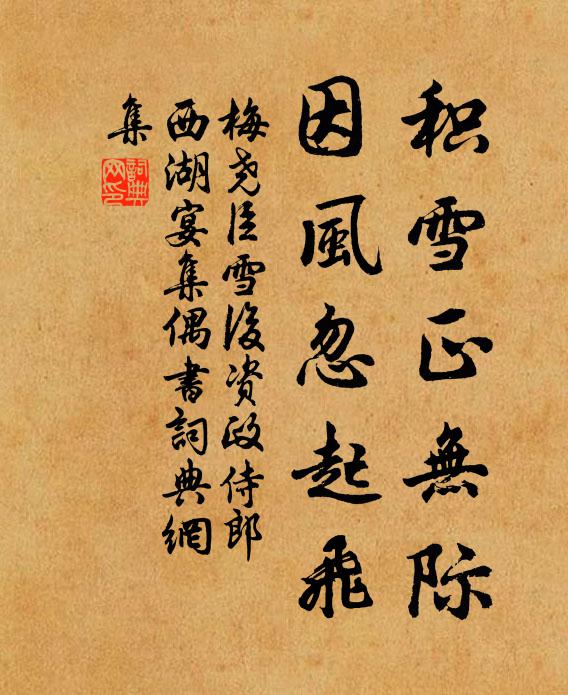 积雪正無际
因風忽起飛
梅尧臣雪後资政侍郎
西湖宴集偶書詞典網
集
詞典网印